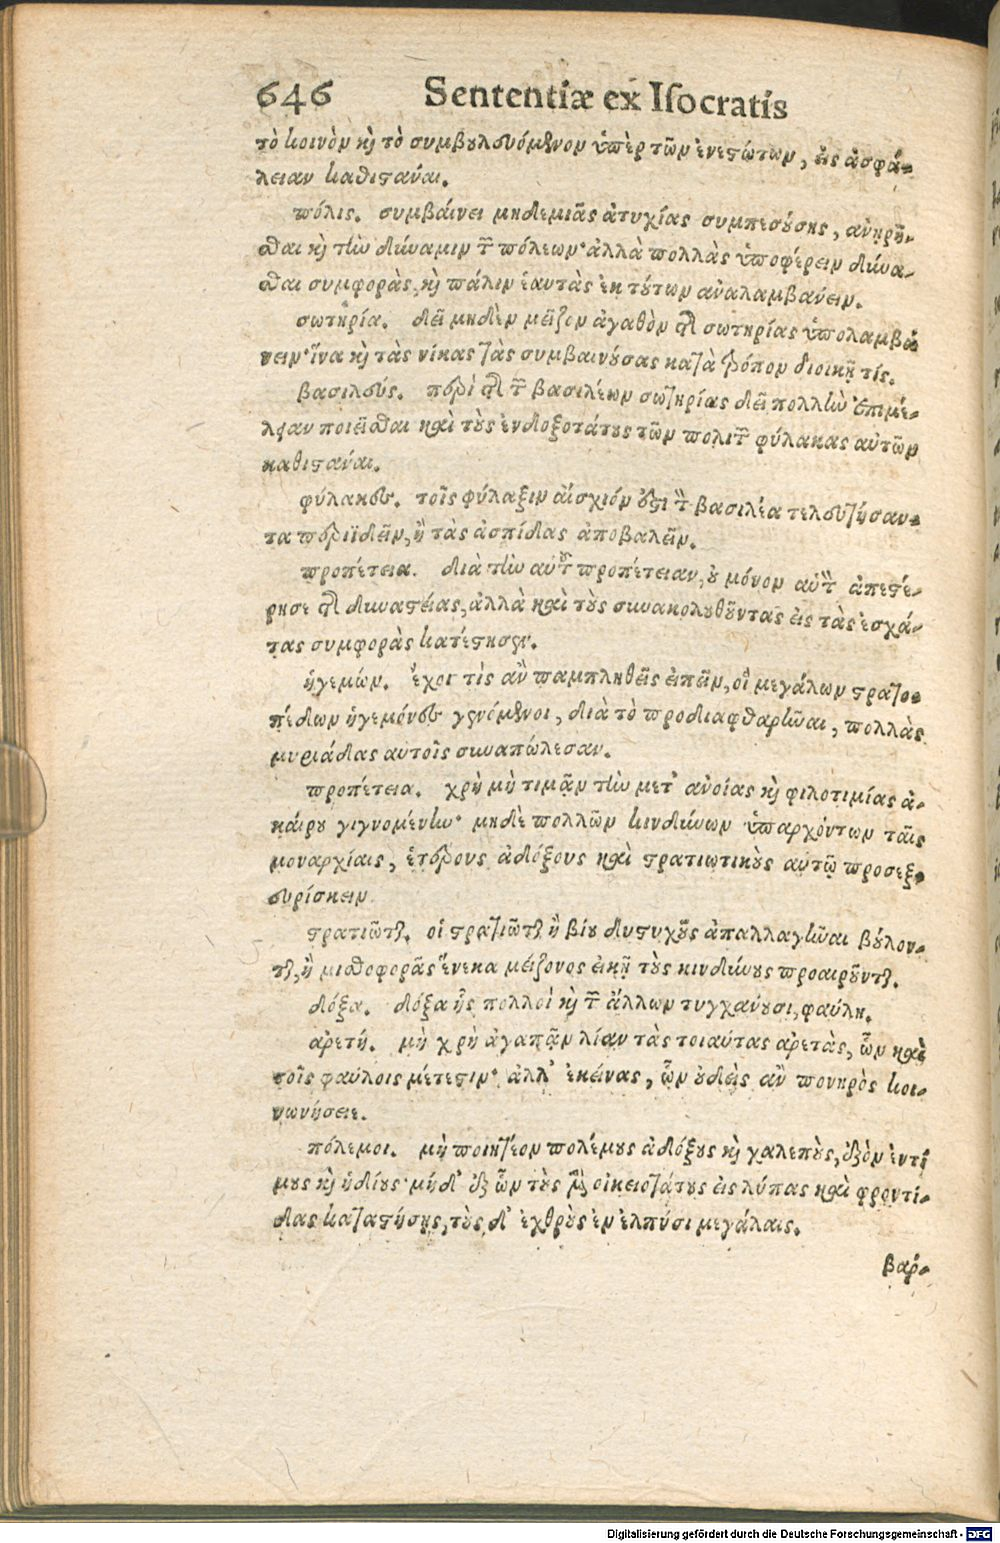 646 Sententiæ ex Iſocratis
τὸ κοινὸν κỳ τὸ συμβουλευόμενον ὑπὲρ τῶν ἐνεστώτων, εἰς ἀσφά-
λειαν καθιστάναι.
πόλις. συμβαίνει μηδεμιᾶς ἀτυχίας συμπεσούσης, ἀνῃρῆ-
σθαι κỳ τὴν δύναμιν τῶν πόλεων· ἀλλὰ πολλὰς ὑποφέρειν δύνα-
σθαι συμφορὰς, κỳ πάλιν ἑαυτὰς ἐκ τούτων ἀναλαμβάνειν.
σωτηρία. δεῖ μηδὲν μεῖζον ἀγαθὸν τῆς σωτηρίας ὑπολαμβά
νειν· ἵνα κỳ τὰς νίκας τὰς συμβαινούσας κατὰ τρόπον διοικῇ τίς.
βασιλεύς. περὶ τῆς τῶν βασιλέων σωτηρίας δεῖ πολλὴν ἐπιμέ-
λειαν ποιεῖσθαι καὶ τοὺς ἐνδοξοτάτους τῶν πολιτῶν φύλακας αὐτῶν
καθιστάναι.
φύλακες. τοῖς φύλαξιν αἴσχιόν ἐστι τὸν βασιλέα τελευτήσαν-
τα περιϊδεῖν, ἢ τὰς ἀσπίδας ἀποβαλεῖν.
προπέτεια. διὰ τὴν αὑτοῦ προπέτειαν, οὐ μόνον αὑτὸν ἀπεστέ-
ρησε τῆς δυναστείας, ἀλλὰ καὶ τοὺς συνακολουθοῦντας εἰς τὰς ἐσχά-
τας συμφορὰς κατέστησεν.
ἡγεμών. ἔχοι τὶς ἂν παμπληθεῖς εἰπεῖν, οἳ μεγάλων στρατο-
πέδων ἡγεμόνες γενόμενοι, διὰ τὸ προδιαφθαρῆναι, πολλὰς
μυριάδας αὐτοῖς συναπώλεσαν.
προπέτεια. χρὴ μὴ τιμᾶν τὴν μετ᾽ ἀνοίας κỳ φιλοτιμίας ἀ-
καίρου γιγνομένην· μηδὲ πολλῶν κινδύνων ὑπαρχόντων ταῖς
μοναρχίαις, ἑτέρους ἀδόξους καὶ στρατιωτικοὺς αὑτῷ προσεξ-
ευρίσκειν
στρατιῶται. οἱ στρατιῶται ἢ βίου δυστυχοῦς ἀπαλλαγῆναι βούλον-
ται, ἢ μισθοφορᾶς ἕνεκα μείζονος εἰκῇ τοὺς κινδύνους προαιροῦνται.
δόξα. δόξα ἧς πολλοὶ κỳ τῶν ἄλλων τυγχάνουσι, φαύλη.
ἀρετή. μὴ χρὴ ἀγαπᾶν λίαν τὰς τοιαύτας ἀρετὰς, ὧν καὶ
τοῖς φαύλοις μέτεστιν· ἀλλ᾽ ἐκείνας, ὧν οὐδεὶς ἂν πονηρὸς κοι-
νωνήσειε.
πόλεμοι. μὴ ποιητέον πολέμους ἀδόξους κỳ χαλεποὺς, ἐξὸν ἐντί
μους κỳ ἡδίους· μήδ᾽ ἐξ ὧν τοὺς μὲν οἰκειοτάτους εἰς λύπας καὶ φροντί-
δας καταστήσῃς, τοὺς δ᾽ ἐχθροὺς ἐν ἐλπίσι μεγάλαις.
βαρ-
Digitalisierung gefördert durch die Deutsche Forschungsgemeinschaft - DFG